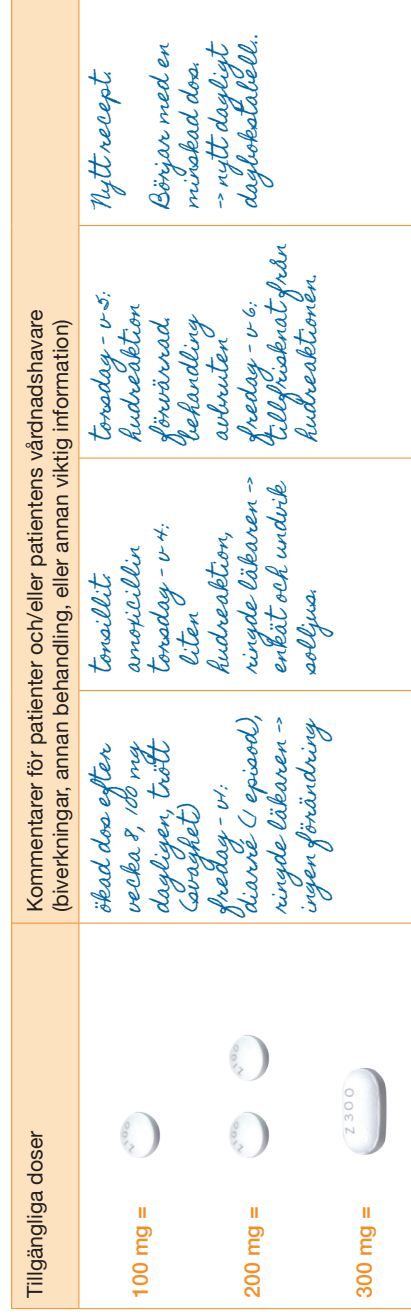 Tillgängliga doser
100 mg =
Z100
200 mg =
Z100
Z100
300 mg =
Z300
Kommentarer för patienter och/eller patientens vårdnadshavare
(biverkningar, annan behandling, eller annan viktig information)
ökad dos efter
vecka 8, 100 mg
dagligen, trött
(svaghet)
fredag - v1:
diarré (1 episod),
ringde läkaren ->
ingen förändring
tonsillit:
amoxicillin
torsdag - v 4:
liten
hudreaktion,
ringde läkaren ->
enkät och undvik
solljus.
torsdag - v 5:
hudreaktion
förvärrad.
behandling
avbruten
fredag - v 6:
tillfrisknat från
hudreaktionen.
Nytt recept.
Börjar med en
minskad dos.
-> nytt dagligt
dagbokstabell..